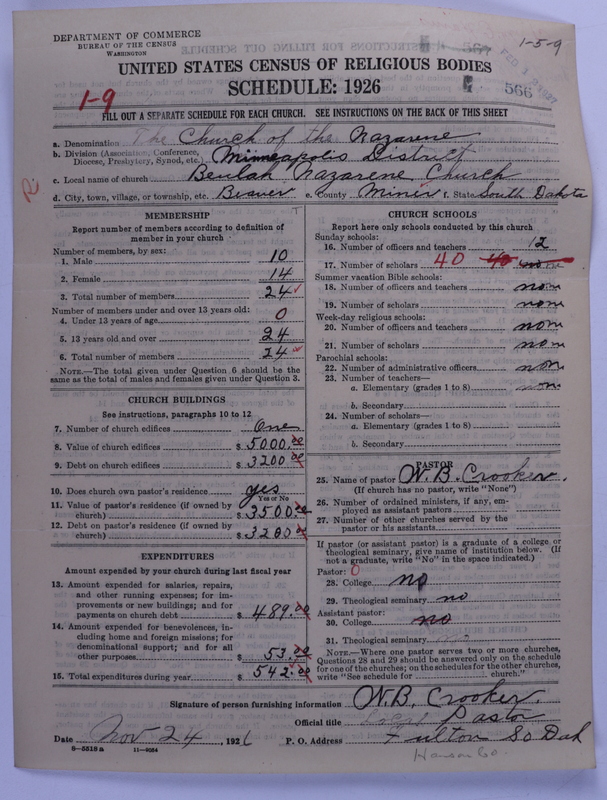 DEPARTMENT OF COMMERCE
BUREAU OF THE CENSUS
WASHINGTON
1-5-9
566
UNITED STATES CENSUS OF RELIGIOUS BODIES
SCHEDULE: 1926
1-9
FILL OUT A SEPARATE SCHEDULE FOR EACH CHURCH. SEE INSTRUCTIONS ON THE BACK OF THIS SHEET
a. Denomination The Church of the Nazarene
b. Division (Association, Conference, Diocese, Presbytery, Synod, etc.) Minneapolis District
c. Local name of church Beulah Nazarene Church
d. City, town, village, or township, etc. Beaver e. County Miner f. State South Dakota
MEMBERSHIP
Report number of members according to definition of
member in your church
Number of members, by sex:
1. Male 10
2. Female 14
3. Total number of members 24
Number of members under and over 13 years old:
4. Under 13 years of age 0
5. 13 years old and over 24
6. Total number of members 24
NOTE.—The total given under Question 6 should be
same as the total of males and females given under Question 3.
CHURCH BUILDINGS
See instructions, paragraphs 10 to 12
7. Number of church edifices One
8. Value of church edifices $ 5000.00
9. Debt on church edifices $ 3200.00
10. Does church own pastor's residence yes
Yes or No
11. Value of pastor's residence (if owned by
church) $ 3500.00
12. Debt on pastor's residence (if owned by
church) $ 3200.00
EXPENDITURES
Amount expended by your church during last fiscal year
13. Amount expended for salaries, repairs,
and other running expenses; for im-
provements or new buildings; and for
payments on church debt $ 489.00
14. Amount expended for benevolences, in-
cluding home and foreign missions; for
denominational support; and for all
other purposes $ 53.00
15. Total expenditures during year $ 542.00
CHURCH SCHOOLS
Report here only schools conducted by this church
Sunday schools:
16. Number of officers and teachers 12
17. Number of scholars 40 40 none
Summer vacation Bible schools:
18. Number of officers and teachers none
19. Number of scholars none
Week-day religious schools:
20. Number of officers and teachers none
21. Number of scholars none
Parochial schools:
22. Number of administrative officers none
23. Number of teachers—
a. Elementary (grades 1 to 8) none
b. Secondary
24. Number of scholars—
a. Elementary (grades 1 to 8)
b. Secondary
PASTOR
25. Name of pastor W. B. Crooker.
(If church has no pastor, write "None")
26. Number of ordained ministers, if any, em-
ployed as assistant pastors
27. Number of other churches served by the
pastor or his assistants
If pastor (or assistant pastor) is a graduate of a college or
theological seminary, give name of institution below. (If
not a graduate, write "No" in the space indicated.)
Pastor: 0
28. College no
29. Theological seminary no
Assistant pastor:
30. College no
31. Theological seminary
NOTE.—Where one pastor serves two or more churches,
Questions 28 and 29 should be answered only on the schedule
for one of the churches; on the schedules for the other churches,
write "See schedule for church."
Signature of person furnishing information W. B. Crooker.
Official title Pastor
Date Nov 24, 1926 P. O. Address Fulton So Dak
8-5518a 11-9084
Hanson Co.